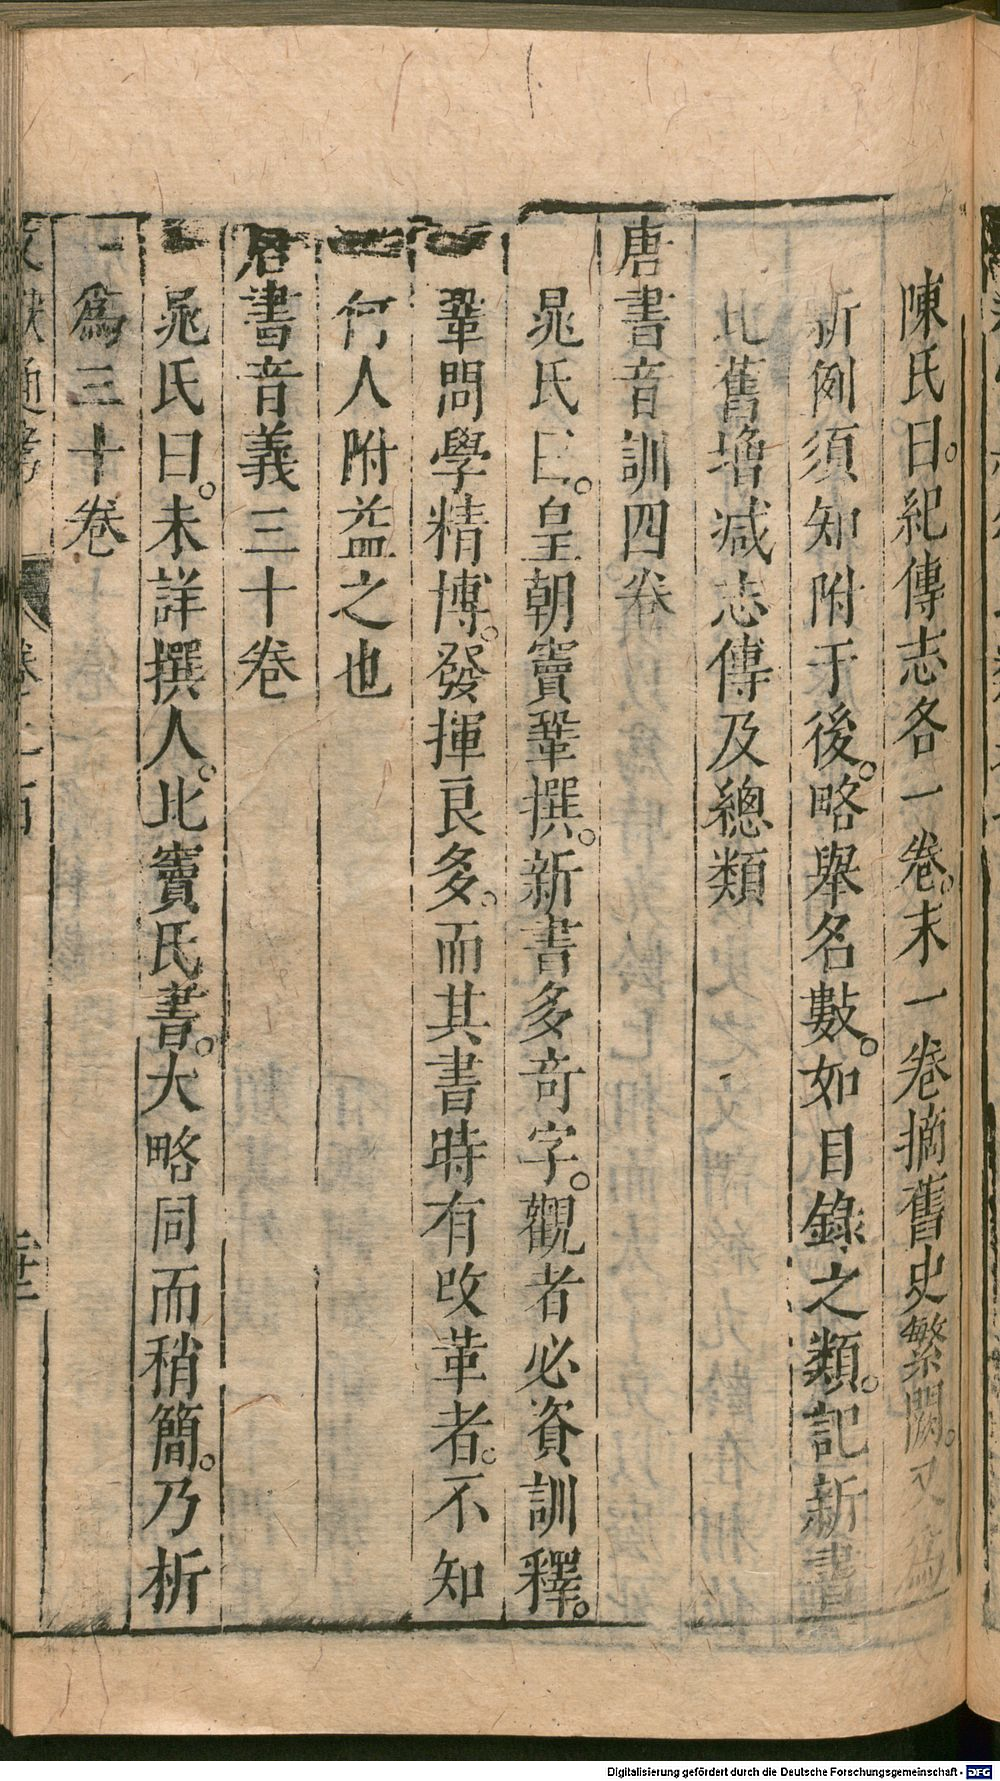 陳氏曰。紀傳志各一卷。末一卷摘舊史繁闕。又爲
新例須知附于後。略舉名數。如目錄之類。記新書
比舊增減志傳及總類
唐書音訓四卷
晁氏曰。皇朝竇鞏撰。新書多奇字。觀者必資訓釋。
鞏問學精博。發揮良多。而其書時有改革者。不知
何人附益之也
唐書音義三十卷
晁氏曰。未詳撰人。比竇氏書。大略同而稍簡。乃析
爲三十卷
文獻通考 卷之二百 二十三
Digitalisierung gefördert durch die Deutsche Forschungsgemeinschaft - DFG